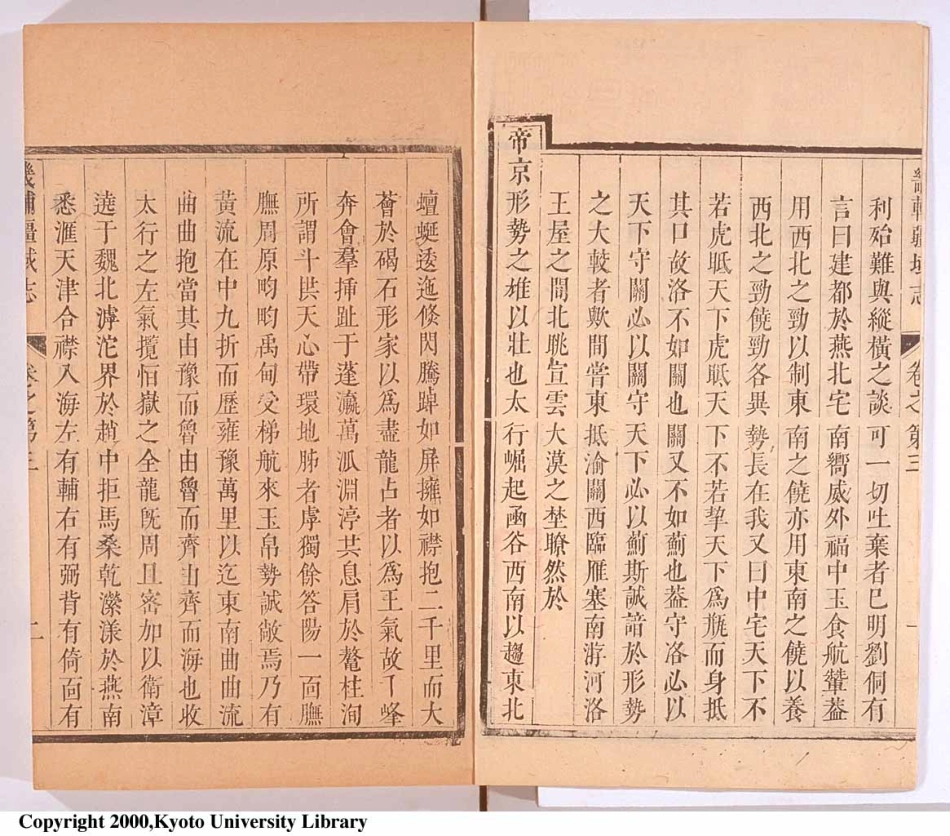 利殆難與縱橫之談可一切吐棄者巳明劉侗有
言曰建都於燕北宅南嚮威外福中玉食航輦葢
用西北之勁以制東南之饒亦用東南之饒以養
西北之勁饒勁各異勢長在我又曰中宅天下不
若虎眂天下虎眂天下不若挈天下爲瓶而身抵
其口故洛不如關也關又不如薊也葢守洛必以
天下守關必以關守天下必以薊斯誠諳於形勢
之大較者歟間嘗東抵渝關西臨雁塞南游河洛
王屋之間北眺宣雲大漠之埜瞭然於
帝京形勢之雄以壯也太行崛起函谷西南以趨東北
畿輔疆域志
卷之第三
一
壇蜒逶迤倏閃騰踔如屏擁如襟抱二千里而大
薈於碣石形家以爲盡龍占者以爲王氣故丫峰
奔會羣揷趾于蓬瀛萬派淵渟共息肩於鼇柱洵
所謂斗拱天心帶環地肺者虖獨餘答陽一面膴
膴周原畇畇禹甸受梯航來玉帛勢誠敞焉乃有
黃流在中九折而歷雍豫萬里以迄東南曲曲流
曲曲抱當其由豫而魯由魯而齊由齊而海也收
太行之左氣攬恒嶽之全龍旣周且密加以衛漳
遶于魏北滹沱界於趙中拒馬桑乾濚漾於燕南
悉滙天津合襟入海左有輔右有弼背有倚面有
畿輔疆域志
卷之第三
二
Copyright 2000,Kyoto University Library